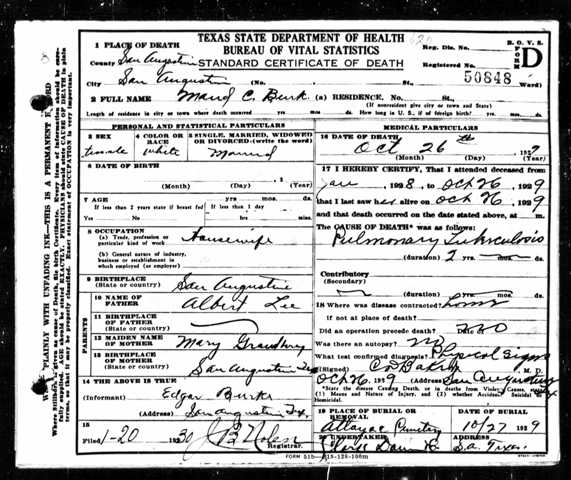 TEXAS STATE DEPARTMENT OF HEALTH
BUREAU OF VITAL STATISTICS
STANDARD CERTIFICATE OF DEATH
R. O. V. S.
FORM D
Reg. Dis. No.
Registered No. 50848
1 PLACE OF DEATH
County San Augustine
City San Augustine (No. St., Ward)
2 FULL NAME Maud C. Burk (a) RESIDENCE, No. St.,
(If nonresident give city or town and State)
Length of residence in city or town where death occurred yrs. mos. ds. How long in U. S., if of foreign birth? yrs. mos. ds.
PERSONAL AND STATISTICAL PARTICULARS
3 SEX female
4 COLOR OR RACE white
5 SINGLE, MARRIED, WIDOWED OR DIVORCED (write the word) Married
6 DATE OF BIRTH
(Month) (Day) (Year)
7 AGE yrs. mos. ds.
If less than 2 years state if breast fed If less than 1 day
Yes No hrs. min.
8 OCCUPATION
(a) Trade, profession or particular kind of work Housewife
(b) General nature of industry, business or establishment in which employed (or employer)
9 BIRTHPLACE
(State or country) San Augustine
PARENTS
10 NAME OF FATHER Albert Lee
11 BIRTHPLACE OF FATHER
(State or country)
12 MAIDEN NAME OF MOTHER Mary
13 BIRTHPLACE OF MOTHER
(State or country) San Augustine Tex
14 THE ABOVE IS TRUE
(Informant) Edgar Burk
(Address) San Augustine Tex.
15
Filed 1-20 1930 J B Nolen
Registrar.
MEDICAL PARTICULARS
16 DATE OF DEATH
Oct 26th, 1929
(Month) (Day) (Year)
17 I HEREBY CERTIFY, That I attended deceased
from Jan 1928, to Oct 26, 1929
that I last saw her alive on Oct 26, 1929
and that death occurred on the date stated above, at m.
The CAUSE OF DEATH* was as follows:
Pulmonary Tuberculosis
(duration) 2 yrs. mos. ds.
Contributory
(Secondary)
(duration) yrs. mos. ds.
18 Where was disease contracted? home
if not at place of death?
Did an operation precede death?
Was there an autopsy? no
What test confirmed diagnosis? Physical Signs
(Signed) M. D.
Oct 26, 1929 (Address) San Augustine, Tex
*State the disease Causing Death, or in deaths from Violent Causes, state (1) Means and Nature of Injury, and (2) whether Accidental, Suicidal or Homicidal.
19 PLACE OF BURIAL OR REMOVAL Attoyac Cemetery
DATE OF BURIAL 10/27 1929
20 UNDERTAKER
ADDRESS S.A. Texas